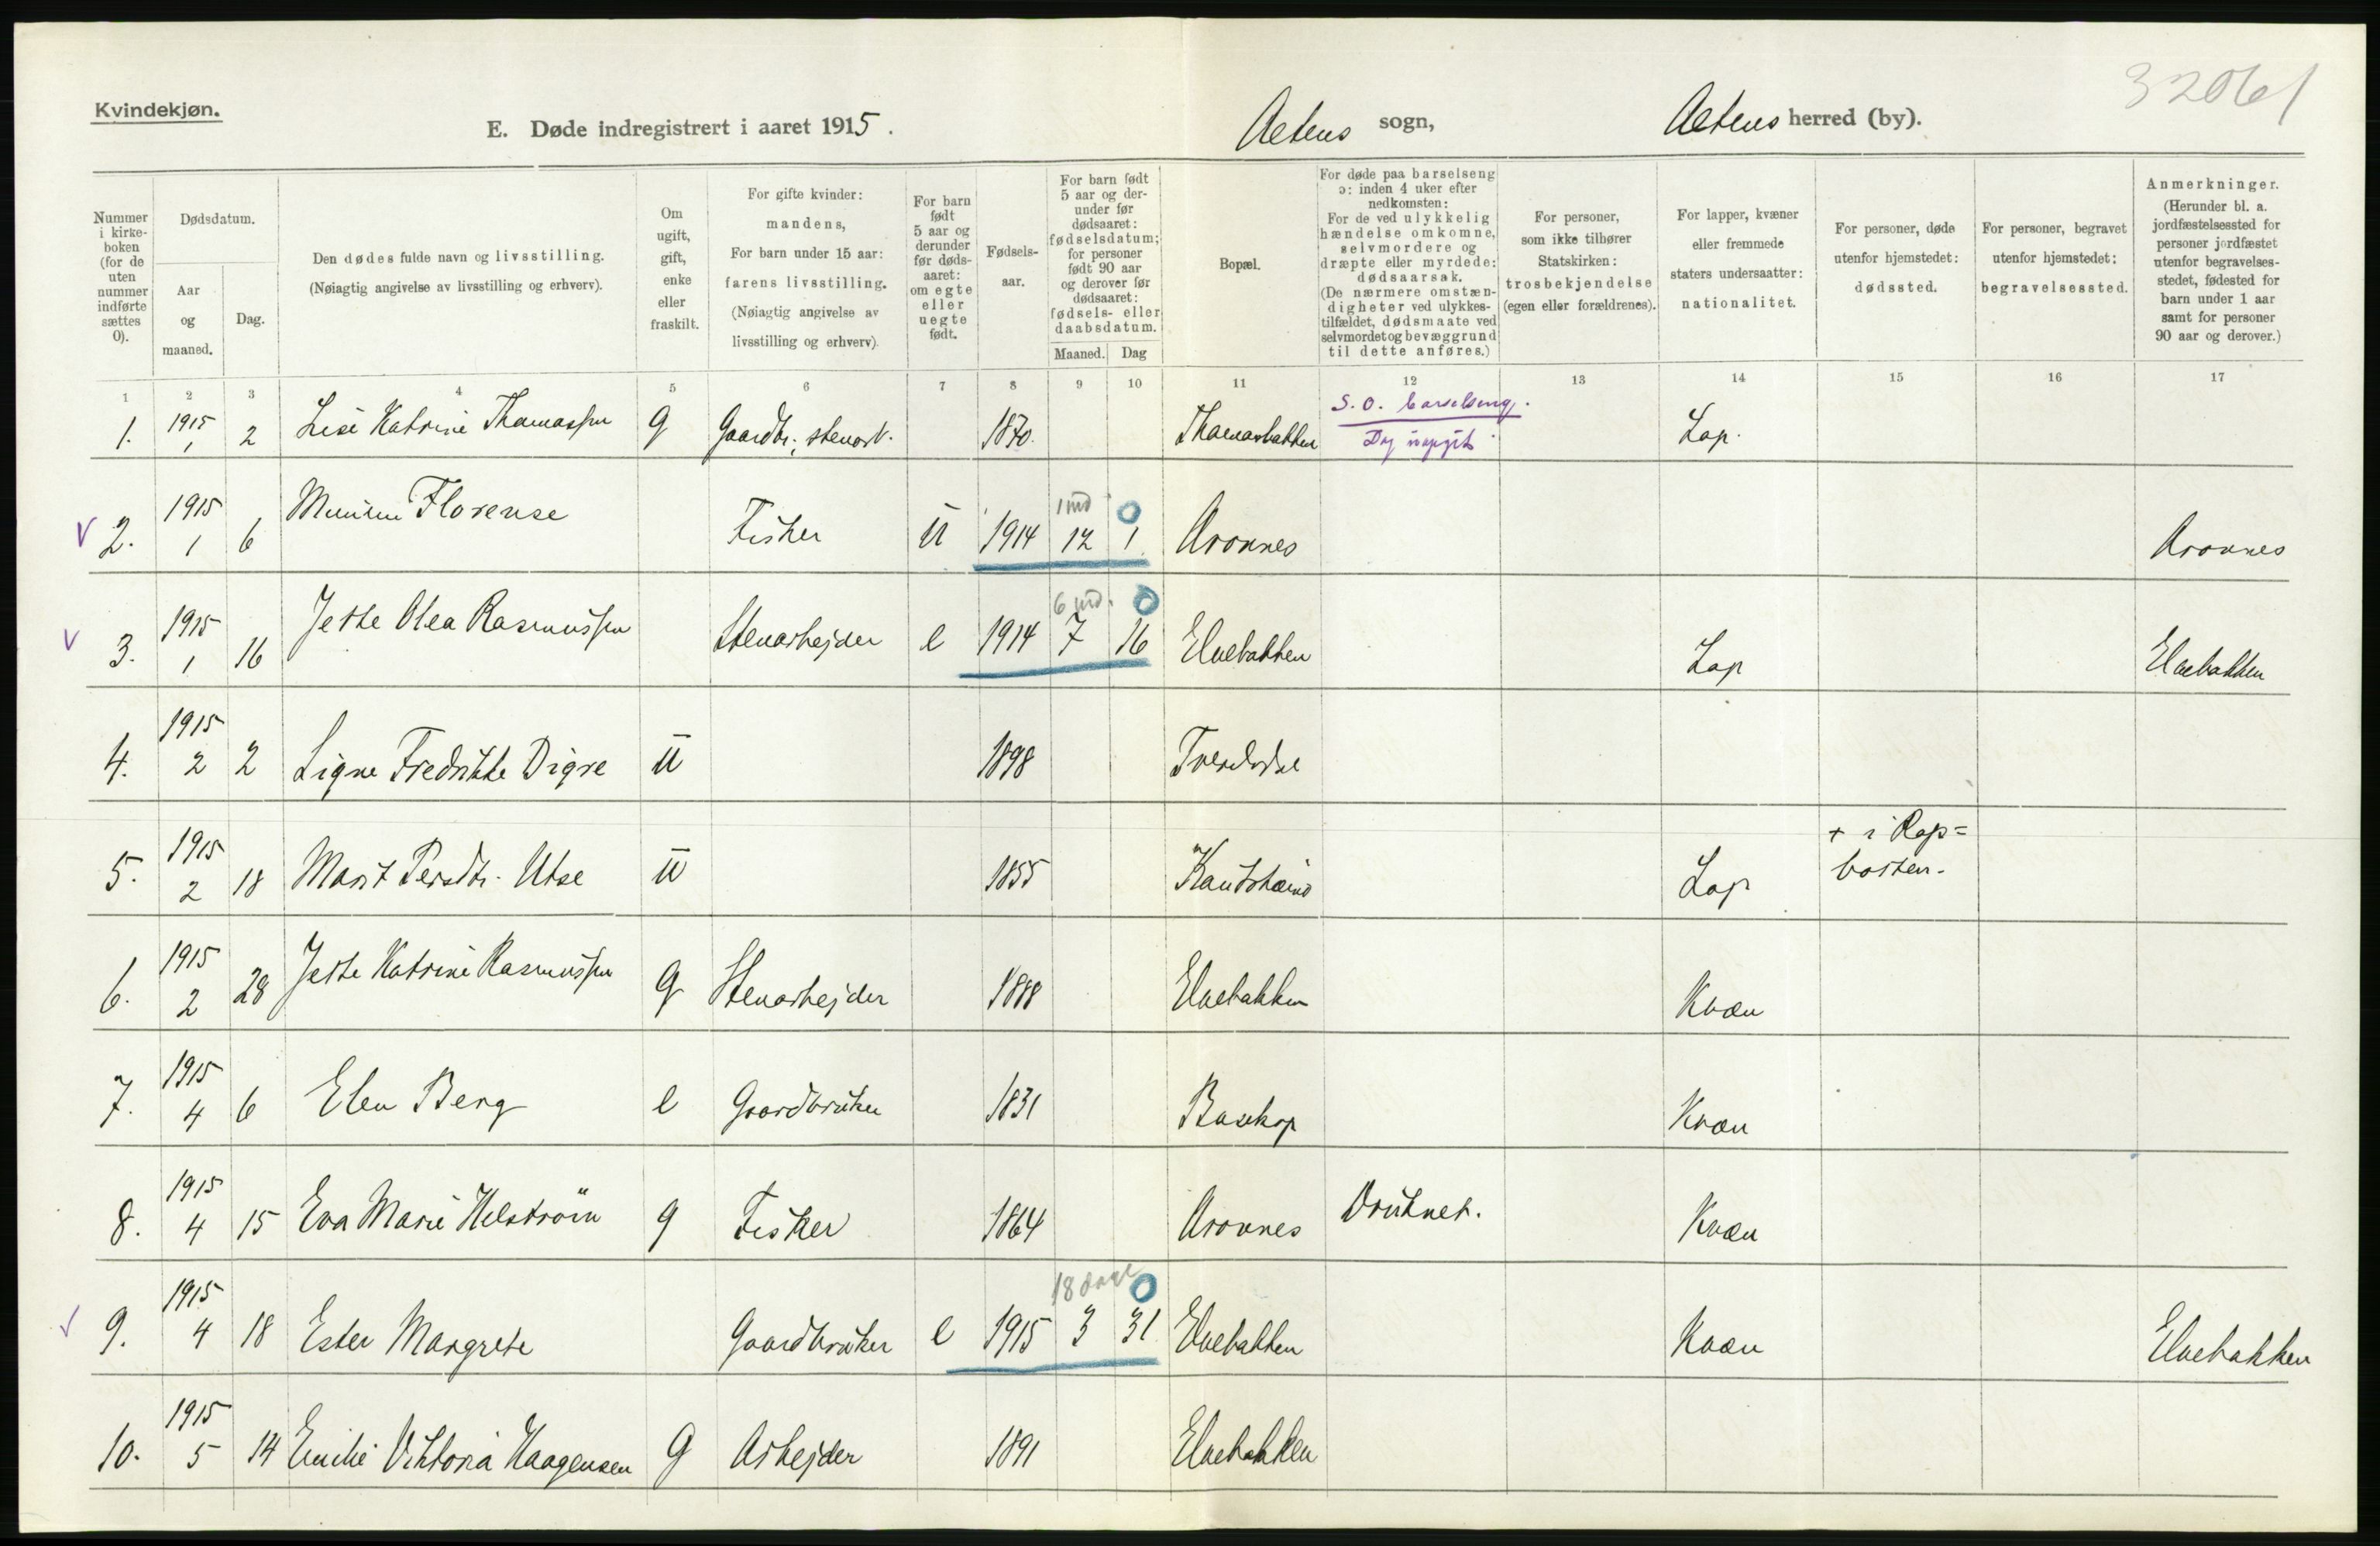 32061
Kvindekjøn.
E. Døde indregistrert i aaret 1915.
Altens sogn,
Altens herred (by).
Nummer i kirke-boken (for de uten nummer indførte sættes 0).
Dødsdatum.
Aar og maaned.
Dag.
Den dødes fulde navn og livsstilling.
(Nøiagtig angivelse av livsstilling og erhverv).
Om ugift, gift, enke eller fraskilt.
For gifte kvinder: mandens,
For barn under 15 aar: farens livsstilling.
(Nøiagtig angivelse av livsstilling og erhverv).
For barn født 5 aar og derunder før døds-aaret: om egte eller uegte født.
Fødsels-aar.
For barn født 5 aar og der-under før dødsaaret: fødselsdatum; for personer født 90 aar og derover før dødsaaret: fødsels- eller daabsdatum.
Maaned. Dag
Bopæl.
For døde paa barselseng ɔ: inden 4 uker efter nedkomsten:
For de ved ulykkelig hændelse omkomne, selvmordere og dræpte eller myrdede: dødsaarsak.
(De nærmere omstæn-digheter ved ulykkes-tilfældet, dødsmaate ved selvmordet og bevæggrund til dette anføres.)
For personer, som ikke tilhører Statskirken: trosbekjendelse (egen eller forældrenes).
For lapper, kvæner eller fremmede staters undersaatter: nationalitet.
For personer, døde utenfor hjemstedet: dødssted.
For personer, begravet utenfor hjemstedet: begravelsessted.
Anmerkninger.
(Herunder bl. a. jordfæstelsessted for personer jordfæstet utenfor begravelses-stedet, fødested for barn under 1 aar samt for personer 90 aar og derover.)
1 2 3 4 5 6 7 8 9 10 11 12 13 14 15 16 17
1. 1915 1 2 Lise Katrine Thomassen g Gaardbr., stenarb. 1870. Thomasbakken S.O. barselseng. Lap.
2. 1915 1 6 Florense Fisker u 1914 12 1 1 md 0 Aronnes Aronnes
3. 1915 1 16 Jette Olea Rasmussen Stenarbejder e 1914 7 16 6 md. 0 Elvebakken Lap Elvebakken
4. 1915 2 2 Signe Fredrikke Digre u 1898 Tverelvdal
5. 1915 2 18 Marit Persdtr. Utse u 1855 Kautokeino Lap + i Rap=
botten.
6. 1915 2 28 Jette Katrine Rasmussen g Stenarbejder 1888 Elvebakken Kvæn
7. 1915 4 6 Elen Berg e Gaardbruker 1831 Bosekop Kvæn
8. 1915 4 15 Eva Marie Helström g Fisker 1864 Aronnes Druknet. Kvæn
9. 1915 4 18 Ester Margrete Gaardbruker e 1915 3 31 18 dage 0 Elvebakken Kvæn Elvebakken
10. 1915 5 14 Emilie Viktoria Haagensen g Arbejder 1891 Elvebakken